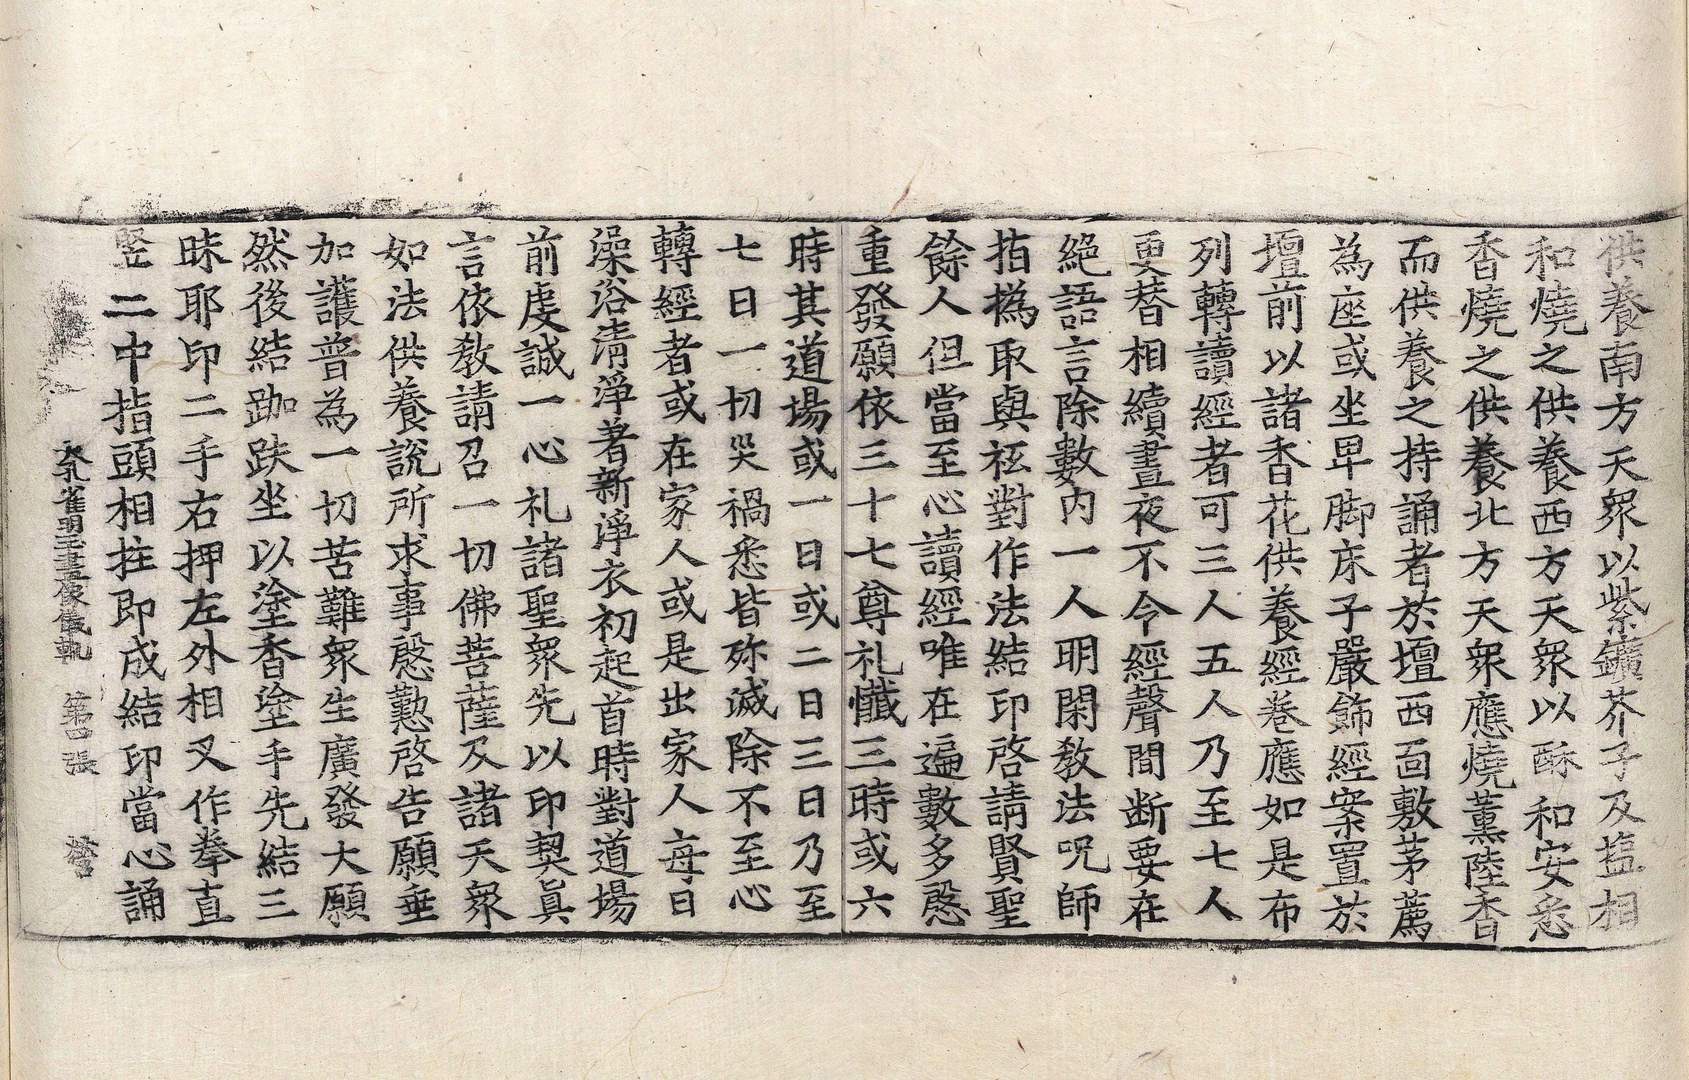 供養南方天衆以紫鑛芥子及塩相
和燒之供養西方天衆以酥和安悉
香燒之供養北方天衆應燒薫陸香
而供養之持誦者於壇西面敷茅薦
為座或坐卑脚床子嚴飾經案置於
壇前以諸香花供養經卷應如是布
列轉讀經者可三人五人乃至七人
更替相續晝夜不令經聲間断要在
絕語言除數內一人明閑教法呪師
指撝取與祗對作法結印啓請賢聖
餘人但當至心讀經唯在遍數多慇
重發願依三十七尊礼懺三時或六
時其道場或一日或二日三日乃至
七日一切災禍悉皆弥滅除不至心
轉經者或在家人或是出家人每日
澡浴清淨著新淨衣初起首時對道場
前虔誠一心礼諸聖衆先以印契眞
言依教請召一切佛菩薩及諸天衆
如法供養說所求事慇懃啓告願垂
加護普為一切苦難衆生廣發大願
然後結跏趺坐以塗香塗手先結三
昧耶印二手右押左外相叉作拳直
竪二中指頭相拄即成結印當心誦
大孔雀明王畫像儀軌 第四張